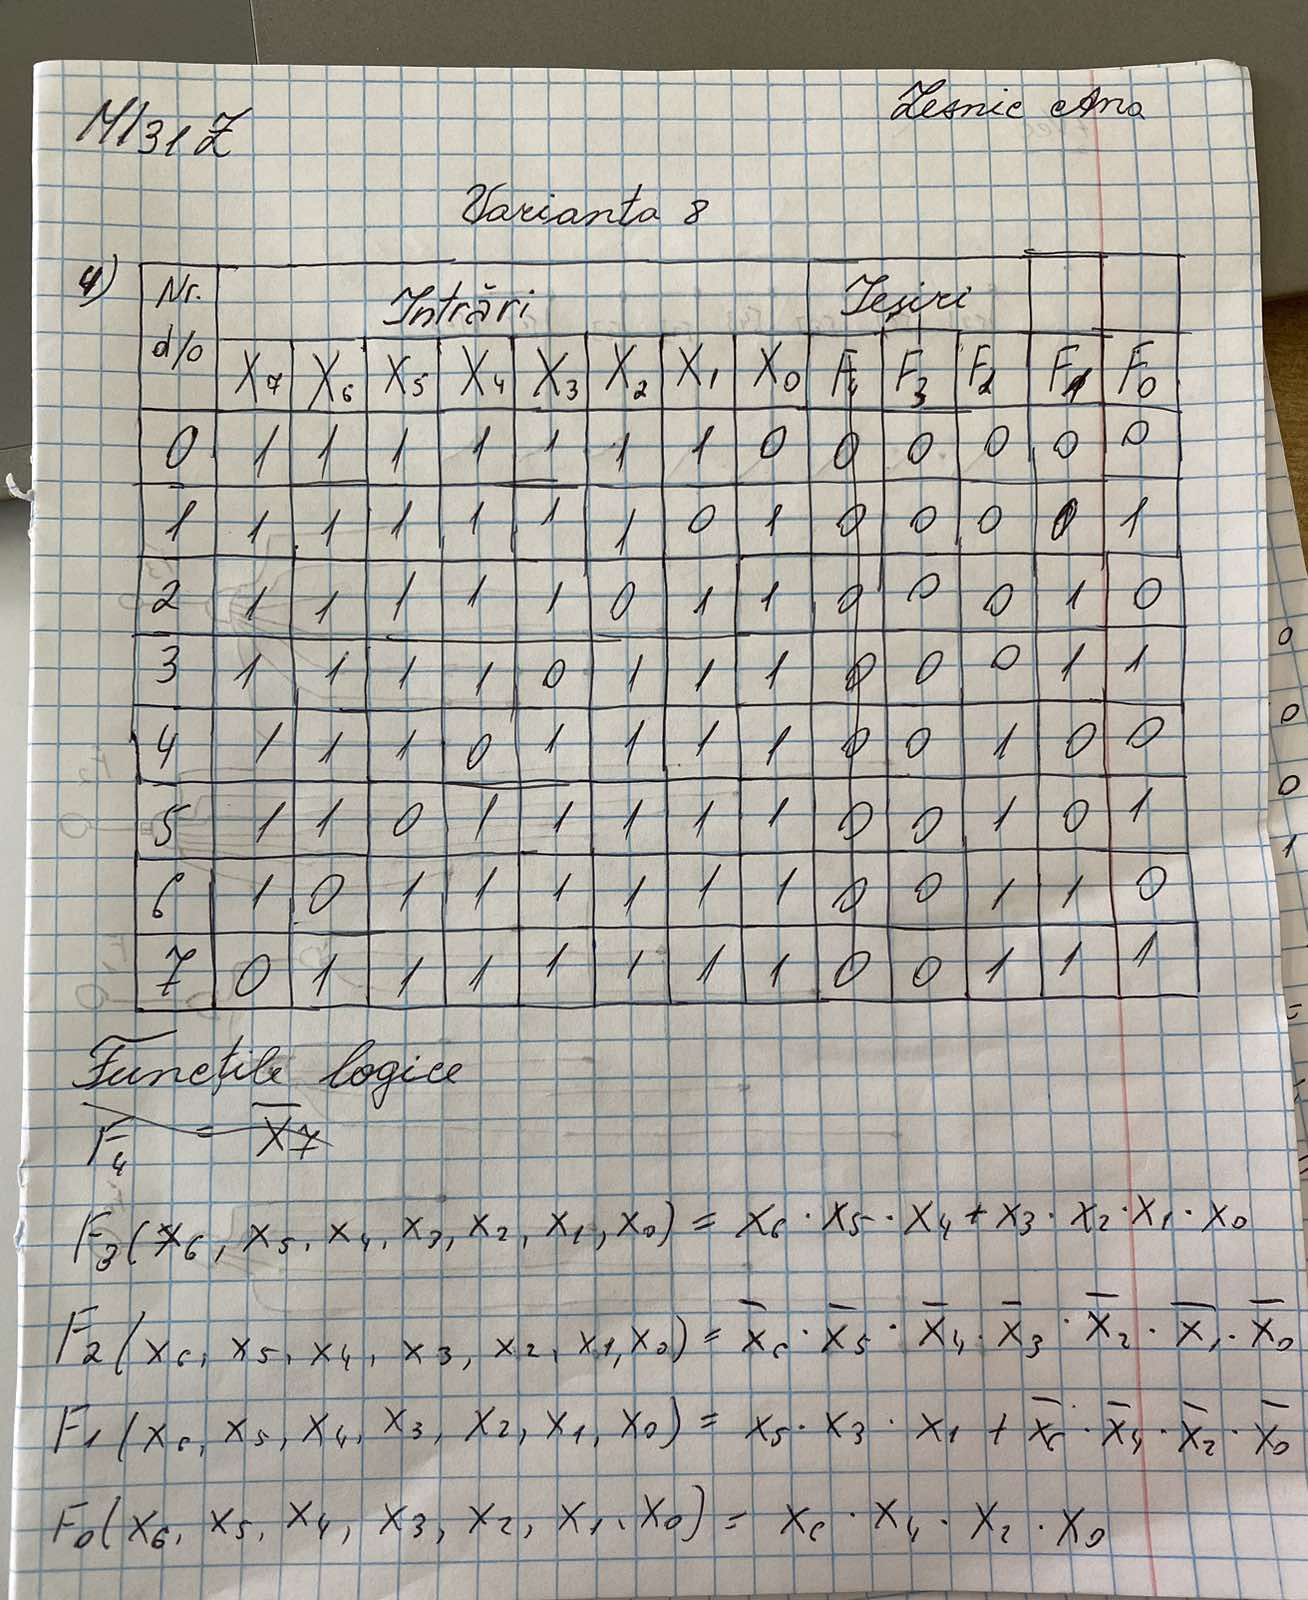 MI31Z Lesnic Ana
Varianta 8
4) Nr. d/o Intrări Ieșiri
X7 X6 X5 X4 X3 X2 X1 X0 F4 F3 F2 F1 F0
0 1 1 1 1 1 1 1 0 0 0 0 0 0
1 1 1 1 1 1 1 0 1 0 0 0 0 1
2 1 1 1 1 1 0 1 1 0 0 0 1 0
3 1 1 1 1 0 1 1 1 0 0 0 1 1
4 1 1 1 0 1 1 1 1 0 0 1 0 0
5 1 1 0 1 1 1 1 1 0 0 1 0 1
6 1 0 1 1 1 1 1 1 0 0 1 1 0
7 0 1 1 1 1 1 1 1 0 0 1 1 1
Funcțile logice
F4 = X̅7
F3 (x6, x5, x4, x3, x2, x1, x0) = x6 · x5 · x4 + x3 · x2 · x1 · x0
F2 (x6, x5, x4, x3, x2, x1, x0) = x̅6 · x̅5 · x̅4 · x̅3 · x̅2 · x̅1 · x̅0
F1 (x6, x5, x4, x3, x2, x1, x0) = x5 · x3 · x1 + x̅6 · x̅4 · x̅2 · x̅0
F0 (x6, x5, x4, x3, x2, x1, x0) = x6 · x4 · x2 · x0